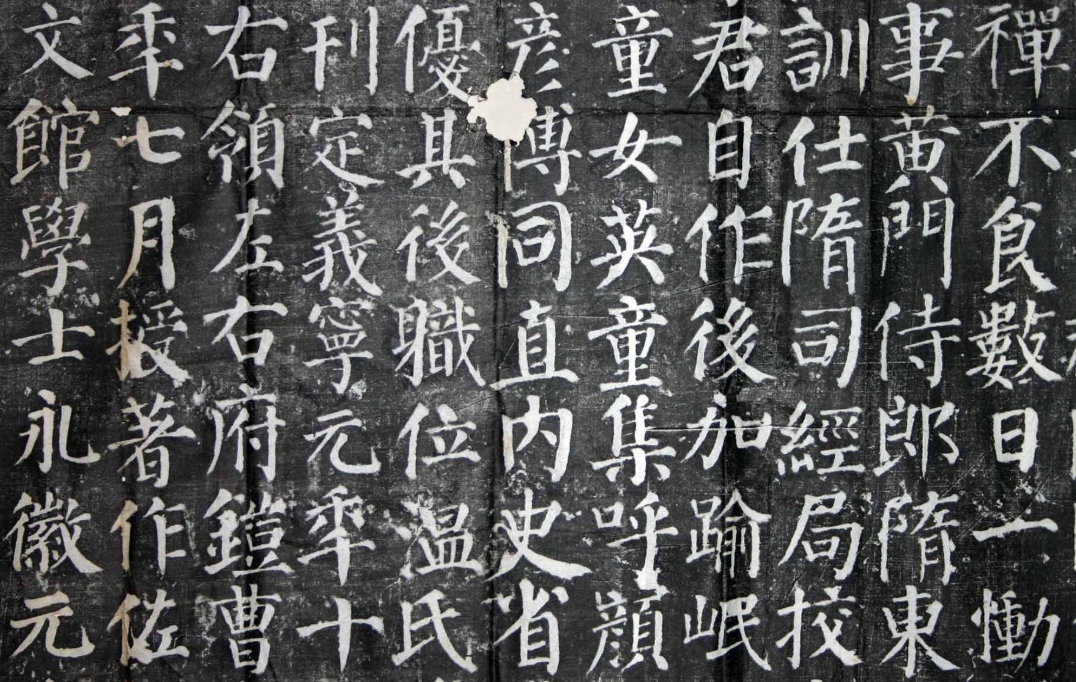 禪不食數日一慟
事黄門侍郎隋東
訓仕隋司經局挍
君自作後加踰岷
童女英童集呼顔
彦博同直内史省
優其後職位温氏
刊定義寧元秊十
右領左右府鎧曹
秊七月授著作佐
文館學士永徽元